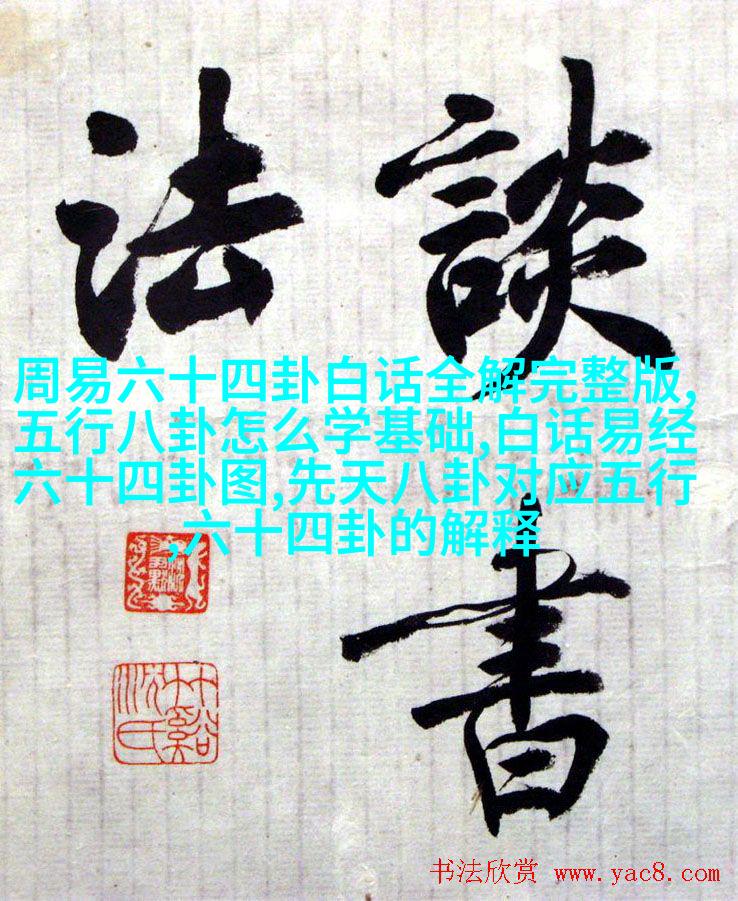 談書
法
周易六十四卦白话全解完整版,
五行八卦怎么学基础,白话易经
六十四卦图,先天八卦对应五行
,六十四卦的解释
书法欣赏 www.yac8.com